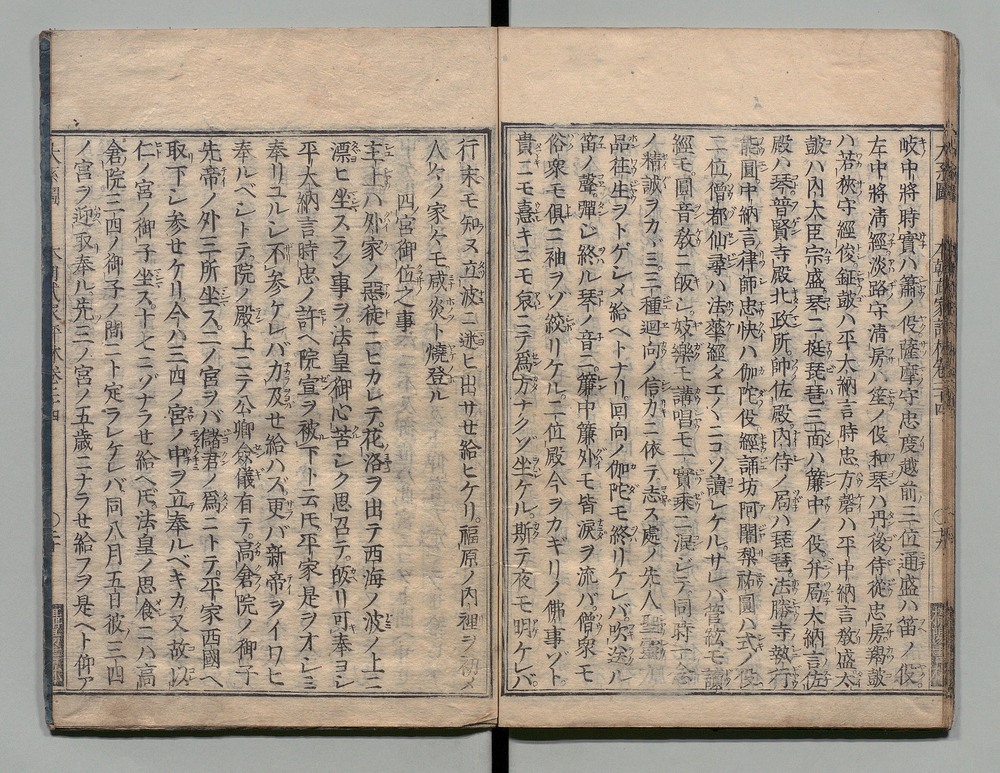 岐中將時實ハ簫ノ役薩摩守忠度越前三位通盛ハ笛ノ役
左中將清經淡路守清房ハ笙ノ役和琴ハ丹後侍從忠房羯皷
ハ若狹守經俊鉦皷ハ平大納言時忠方磬ハ平中納言敎盛太
皷ハ内大臣宗盛琴二梃琵琶三面ハ簾中ノ役弁局大納言佐
殿ハ琴普賢寺殿北政所帥佐殿内侍ノ局ハ琵琶法勝寺執行
能圓中納言律師忠快ハ伽陀役經誦坊阿闍梨祐圓ハ式ノ役
二位僧都仙尋ハ法華經タエ〱ニコソ讀レケルサレバ管絃モ讀
經モ圓音敎ニ皈シ妓樂モ講唱モ一實乘ニ混シテ同時
ノ精誠ヲカヽミ三種迴向ノ信力ニ依テ志ス處ノ先人聖靈
品往生ヲトゲシメ給ヘトナリ回向ノ伽陀モ終リケレバ吹送ル
笛ノ聲彈シ終ル琴ノ音ニ簾中簾外モ皆淚ヲ流バ僧衆モ
俗衆モ俱ニ袖ヲゾ絞リケル二位殿今ヲカギリノ佛事ゾト
貴ニモ憙キニモ哀ニテ爲方ナクゾ坐ケル斯テ夜モ明ケレバ
行末モ知ヌ立波ニ迷ヒ出サセ給ヒケリ福原ノ内裡ヲ初メ
人々ノ家々モ咸炎ト燒登ル
四宮御位之事
主上ハ外家ノ惡徒ニヒカレテ花洛ヲ出テ西海ノ波ノ上ニ
漂ヒ坐スラン事ヲ法皇御心苦シク思召テ皈リ可奉ヨシ
平大納言時忠ノ許ヘ院宣ヲ被下ト云𪜈平家是ヲオシミ
奉リユルシ不参ケレバカ及せ給ハズ更バ新帝ヲイワヒ
奉ルベシトテ院ノ殿上ニテ公卿僉儀有テ高倉院ノ御子
先帝ノ外三所坐ス二ノ宮ヲバ儲君ノ爲ニトテ平家西國ヘ
取下シ参せケリ今ハ三四ノ宮ノ中ヲ立奉ルベキカ又故以
仁ノ宮ノ御子坐ス十七ニゾナラせ給ヘ𪜈法皇ノ思食ニハ高
倉院三四ノ御子ノ間ニト定ラレケレバ同八月五日彼三四
ノ宮ヲ迎取奉ル先三ノ宮ノ五歲ニナラせ給フヲ是ヘト仰ア